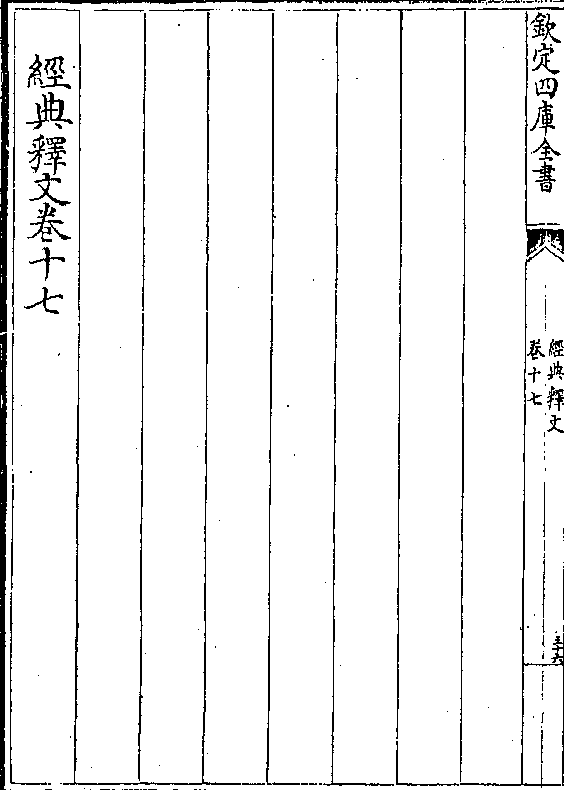 欽定四庫全書
經典釋文
卷十七
三十六
經典釋文卷十七